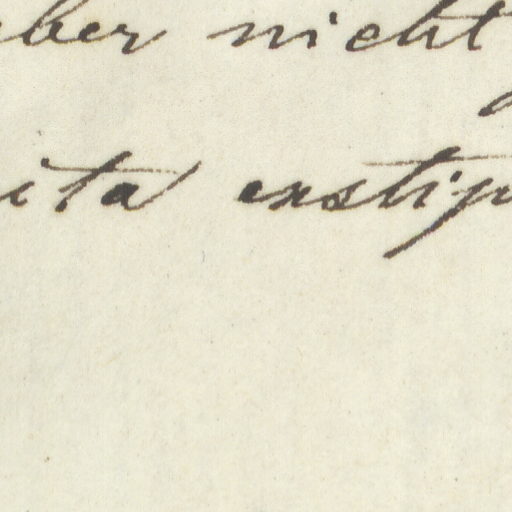 aber nicht
ita exstip